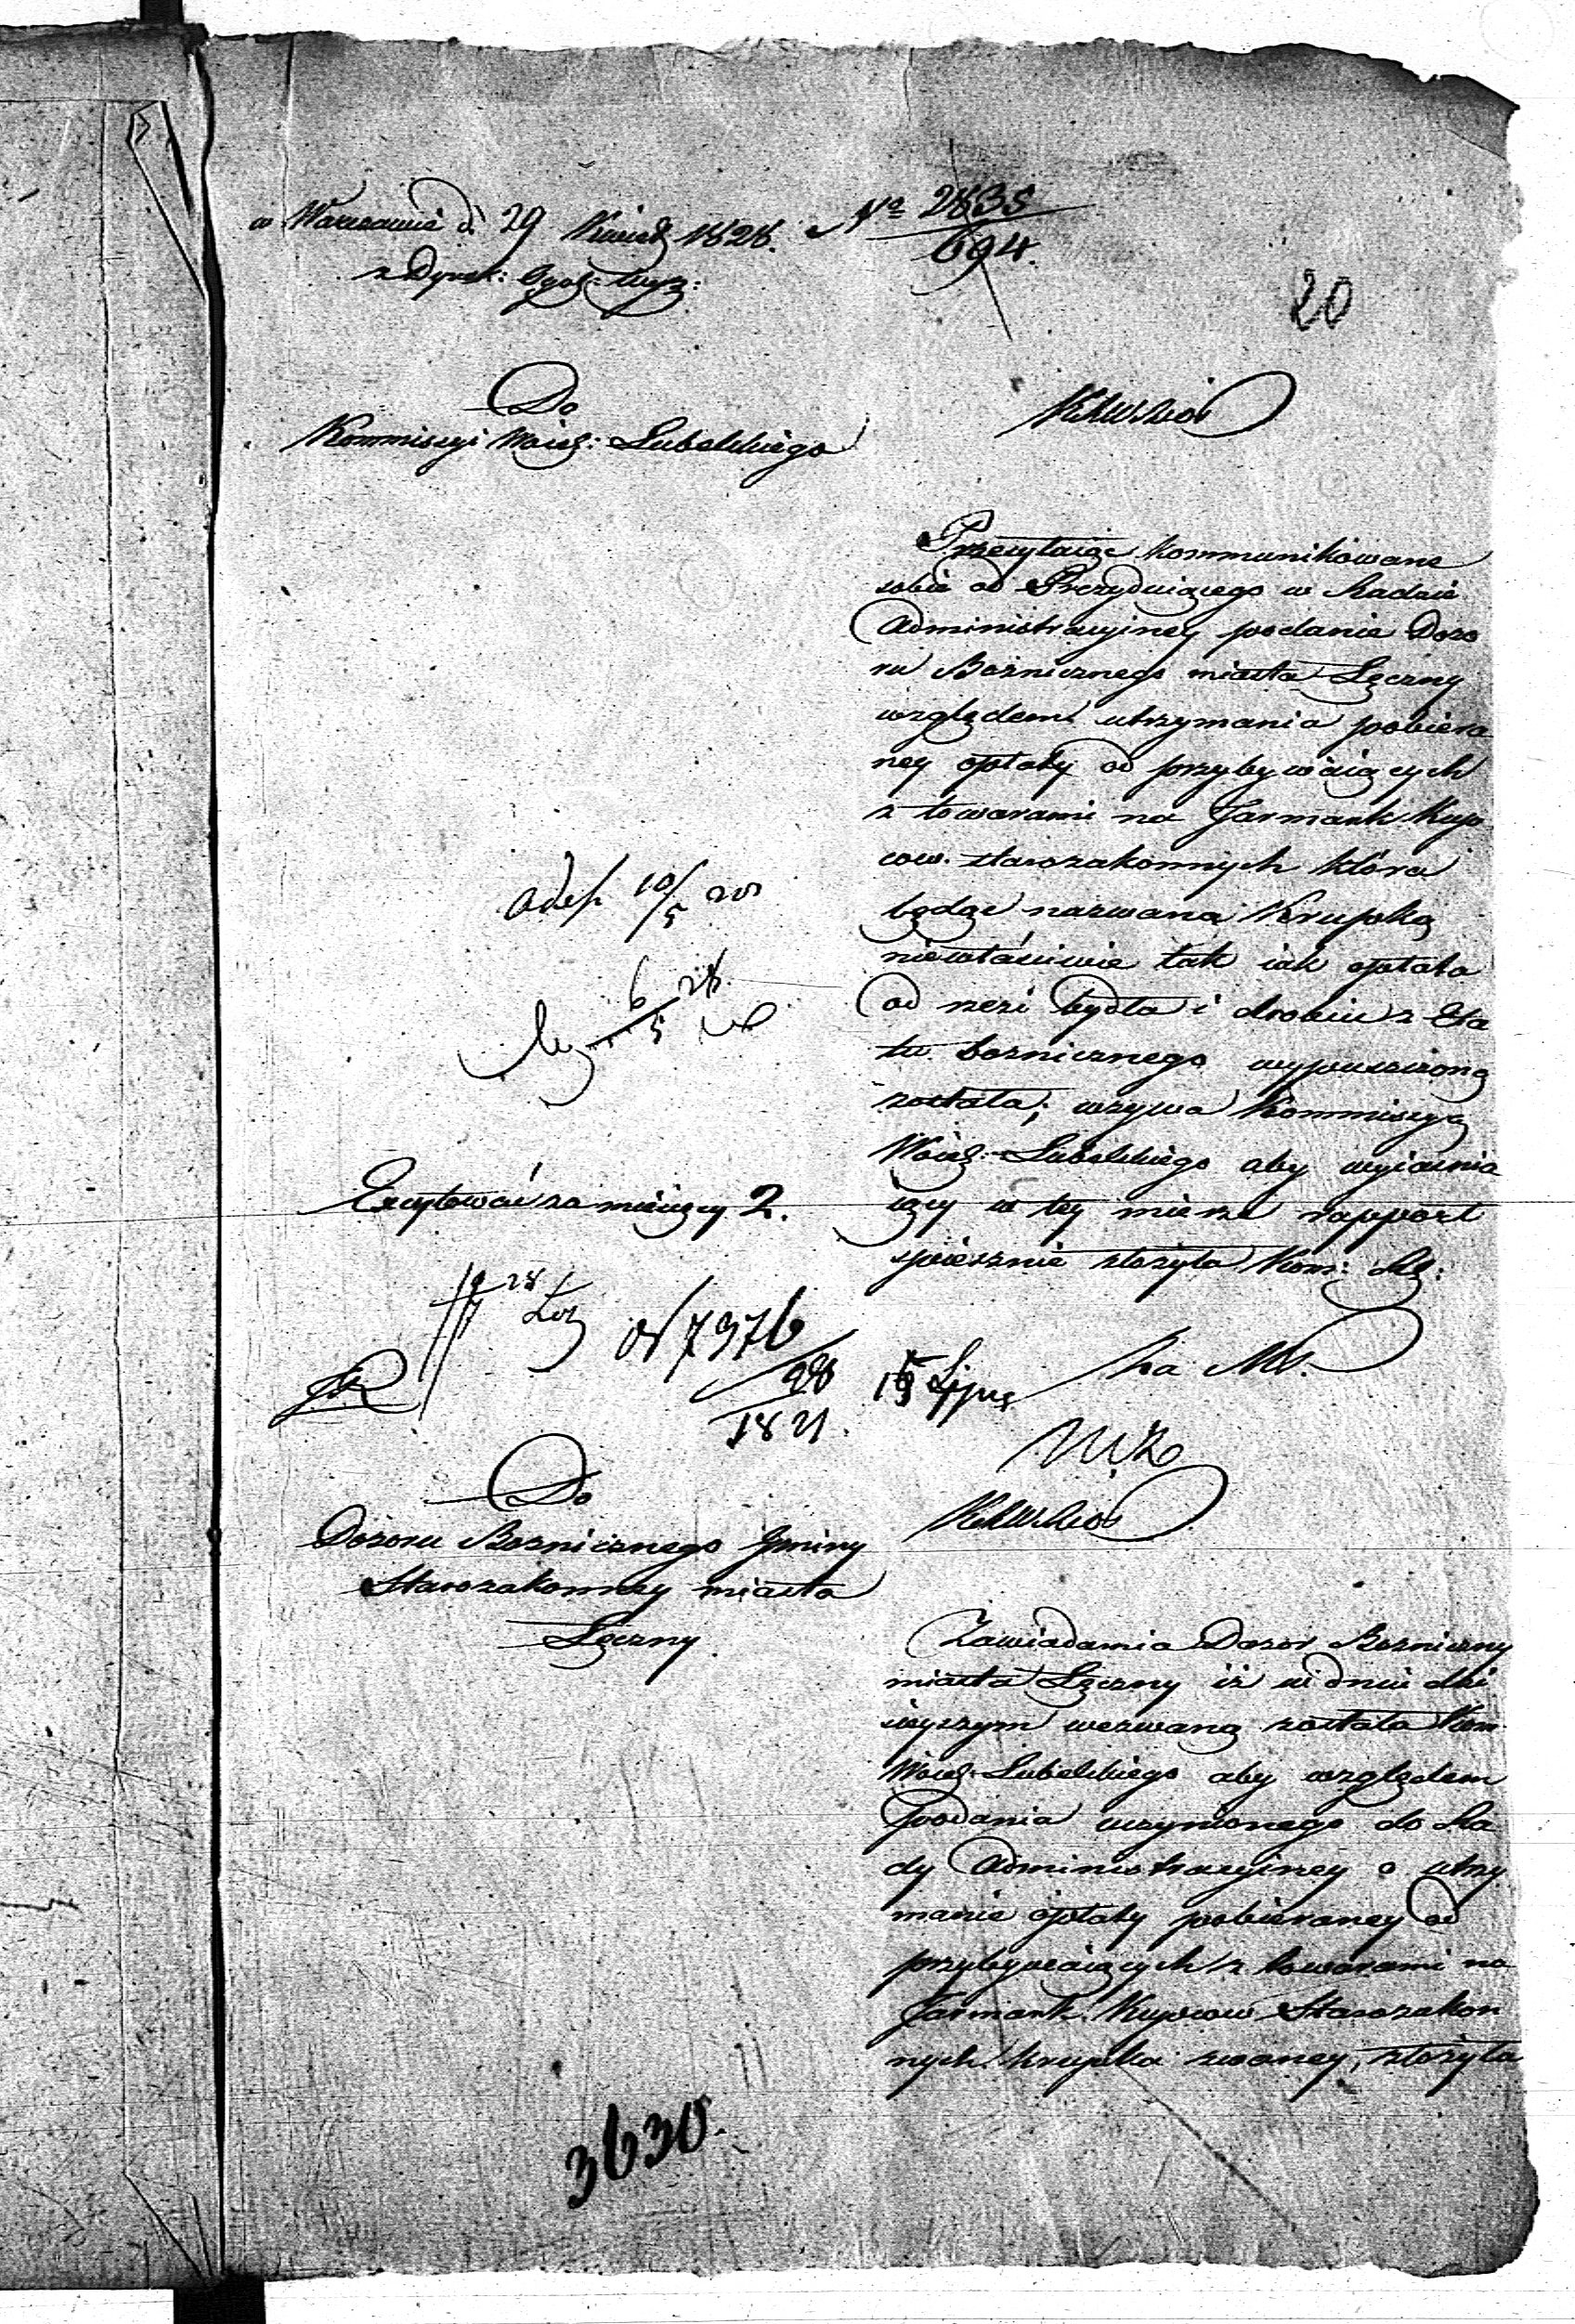 w Warszawie d. 29 Kwiet 1828. No 2835
694.
z Dyrek: Ogol: Wyz:
20
Do
Kommissyi Woiew: Lubelskiego
KRWRiOP
Przesyłaiąc kommunikowane
sobie od Prezyduiącego w Radzie
Administracyiney podanie Dozo
ru Bożnicznego miasta Łęczny
względem utrzymania pobiera
ney opłaty od przybywaiących
z towarami na Jarmark Kup
cow starozakonnych która
będąc nazwaną Krupką
niewłaściwie tak iak opłata
od rzezi bydła i drobiu z Eta
tu boznicznego wypuszczoną
została; wzywa Kommissyą
Woiew: Lubelskiego aby wyiaśnia
iący w tey mierze rapport
spiesznie złożyła Kom: Rz:
10/5
6/5 28
Excytować za miesięcy 2.
28
N 7976
28
1821.
15 Lipca
za M.
KRWRiOP
Do
Dozoru Boznicznego Gminy
Starozakonney miasta
Łęczny
Zawiadamia Dozor Bozniczny
miasta Łęczny iż w dniu dzi
sieyszym wezwaną została Kom
Woiew: Lubelskiego aby względem
Podania uczynionego do Ra
dy Administracyiney o utrzy
manie opłaty pobieraney od
przybywaiących z towarami na
Jarmark Kupcow Starozakon
nych krupka zwaney, złożyła
3630.